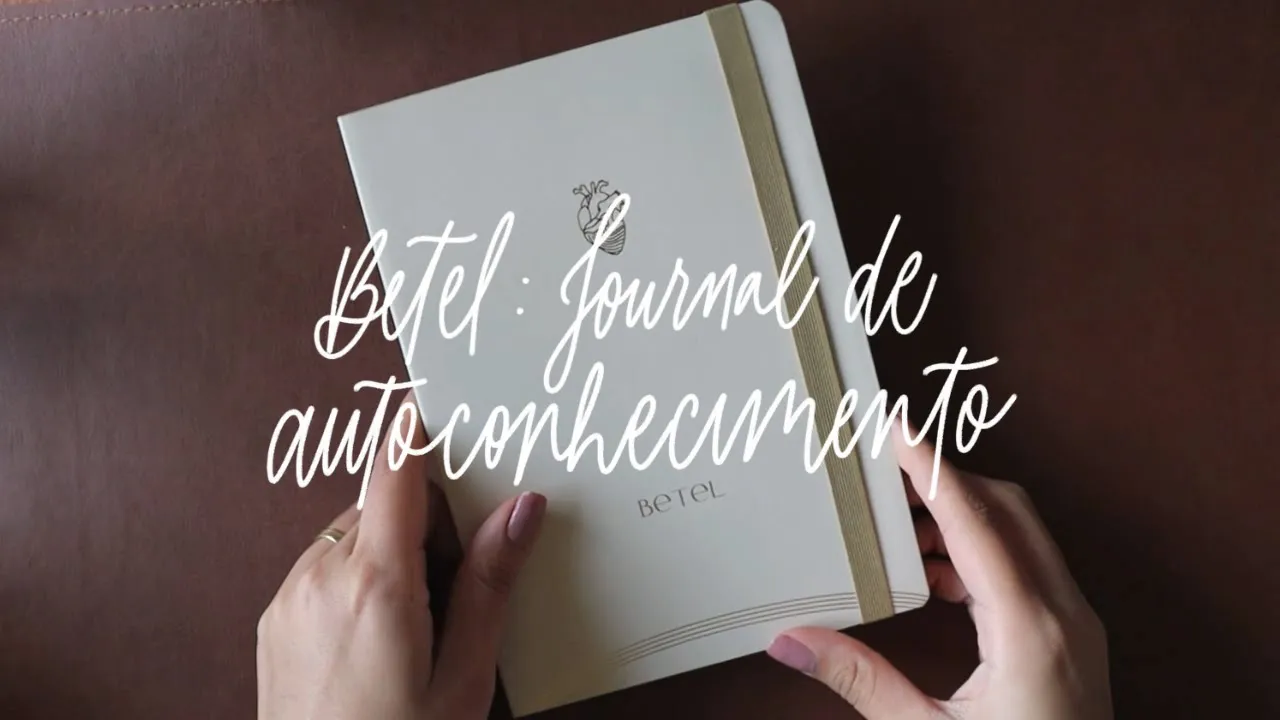 Betel: Journal de
autoconhecimento
BeTeL